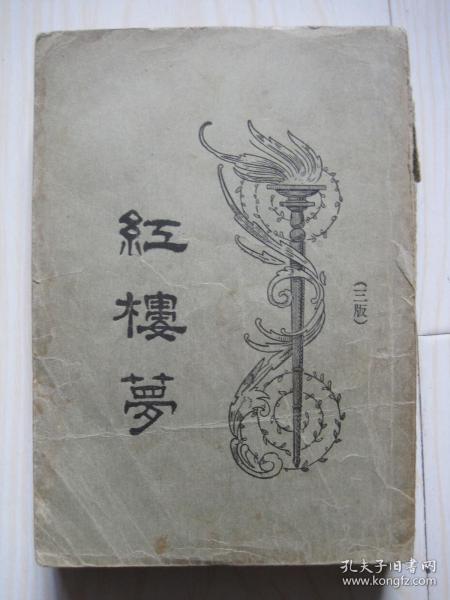 紅樓夢
（三版）
孔夫子旧书网
www.kongfz.com